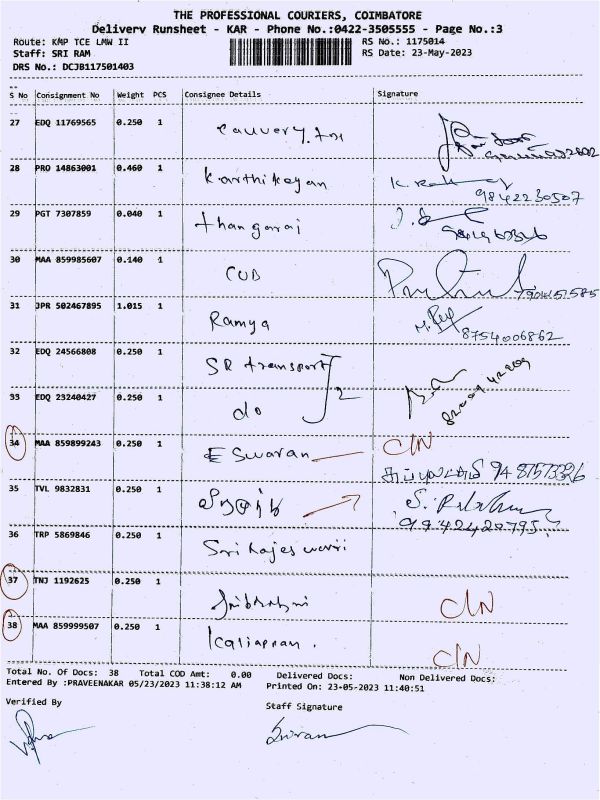 THE PROFESSIONAL COURIERS, COIMBATORE
Delivery Runsheet - KAR - Phone No.:0422-3505555 - Page No.:3
Route: KMP TCE LMW II RS No.: 1175014
Staff: SRI RAM RS Date: 23-May-2023
DRS No.: DCJB117501403
S No Consignment No Weight PCS Consignee Details Signature
27 EDQ 11769565 0.250 1
28 PRO 14863001 0.460 1 Karthikeyan
9842230507
29 PGT 7307859 0.040 1 thangaraj
30 MAA 859985607 0.140 1 CUB
31 JPR 502467895 1.015 1 Ramya
8754006862
32 EDQ 24566808 0.250 1 SR transport
33 EDQ 23240427 0.250 1 do 2
34 MAA 859899243 0.250 1 Eswaran C/N
35 TVL 9832831 0.250 1
9942420795
36 TRP 5869846 0.250 1 Sri Rajeswari
37 TNJ 1192625 0.250 1 C/N
38 MAA 859999507 0.250 1 Kaliappan. C/N
Total No. Of Docs: 38 Total COD Amt: 0.00 Delivered Docs: Non Delivered Docs:
Entered By :PRAVEENAKAR 05/23/2023 11:38:12 AM Printed On: 23-05-2023 11:40:51
Verified By Staff Signature